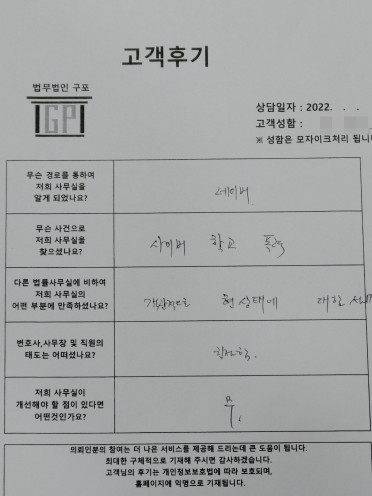 고객후기
법무법인 구포
GP
상담일자 : 2022. . .
고객성함 :
※ 성함은 모자이크처리 됩니
무슨 경로를 통하여
저희 사무실을
알게 되었나요?
네이버
무슨 사건으로
저희 사무실을
찾으셨나요?
사이버 학교 폭력
다른 법률사무실에 비하여
저희 사무실의
어떤 부분에 만족하셨나요?
객관적으로 현 상태에 대한
변호사,사무장 및 직원의
태도는 어떠셨나요?
친절함.
저희 사무실이
개선해야 할 점이 있다면
어떤것인가요?
무.
의뢰인분의 참여는 더 나은 서비스를 제공해 드리는데 큰 도움이 됩니다.
최대한 구체적으로 기재해 주시면 감사하겠습니다.
고객님의 후기는 개인정보보호법에 따라 보호되며,
홈페이지에 익명으로 기재됩니다.